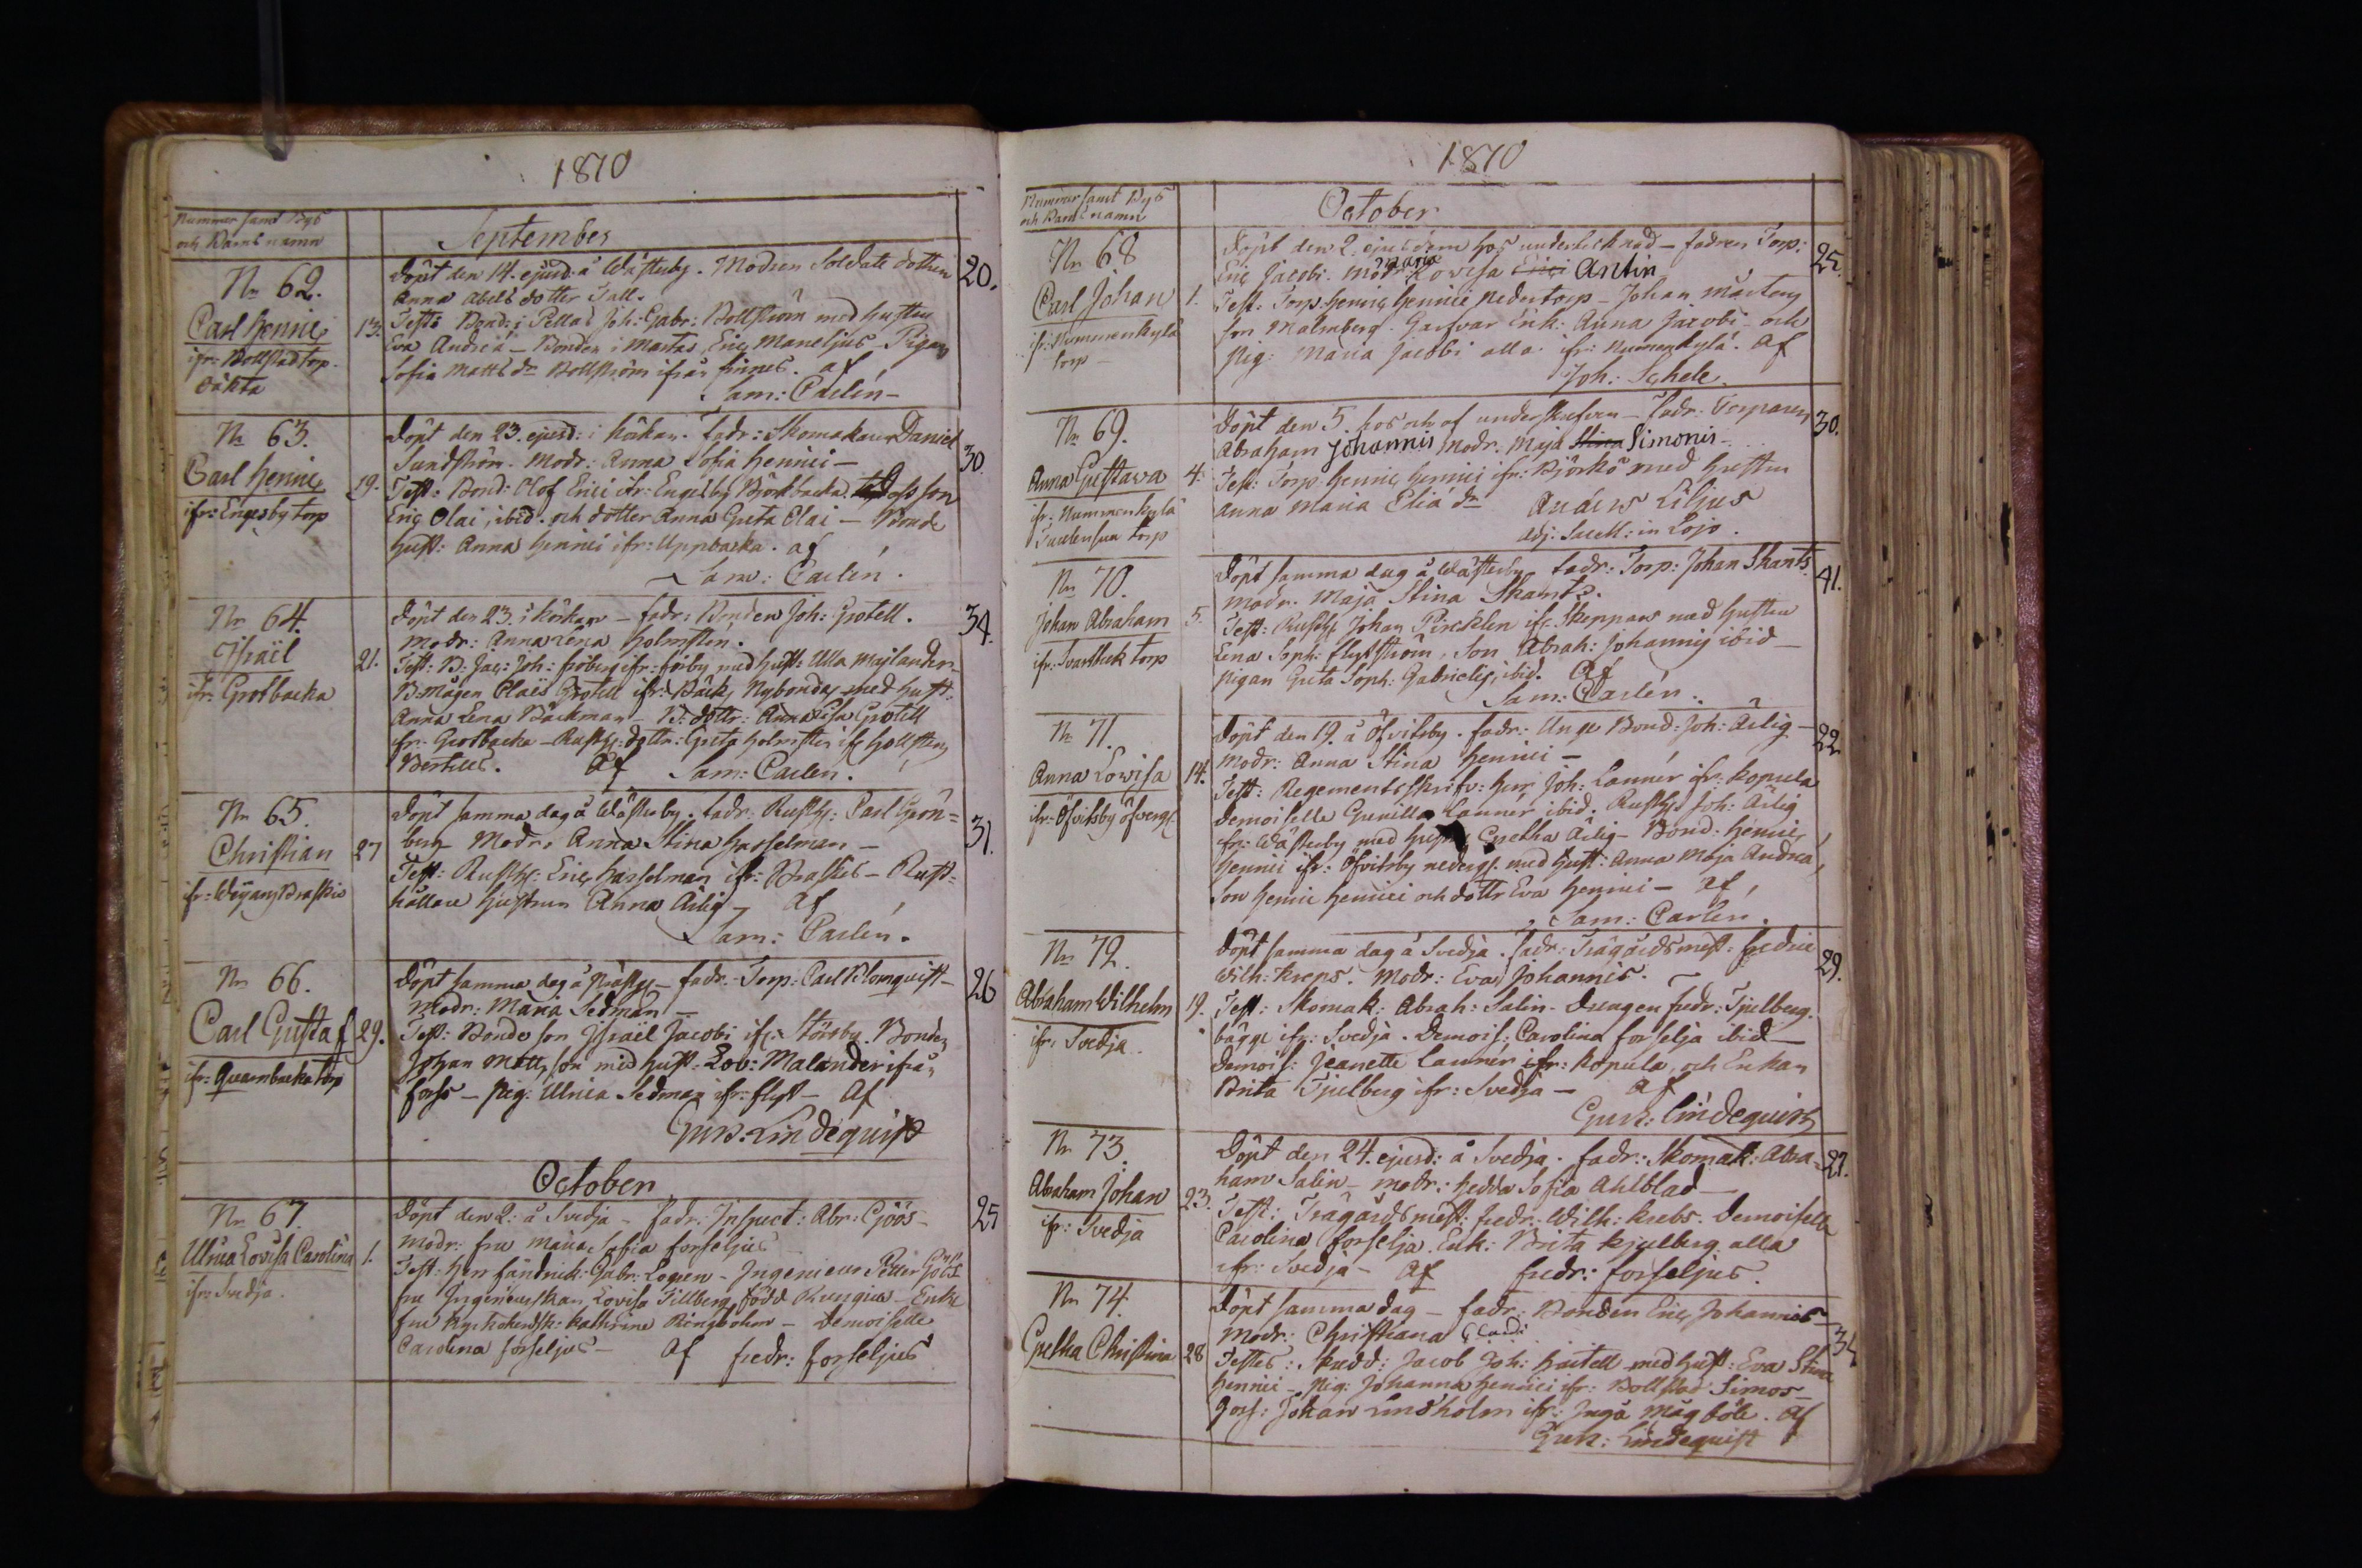 1810
Nummer samt Bys
och Barns namn
September
No 62.
Carl Henric
ifr: Bollstad torp
oäkta
13.
Döpt den 14. ejusd. å Wästerby. Modren Soldats dottren
Anna Abels dotter Fall.
Test: Bond: i Pellas Joh: Gabr: Bollström med hustru
Eva Andreä - Bonden i Martas Eric Maneljus - Pigan
Sofia Matts dr Bollström ifrån finnes. af
Sam: Carlén -
20.
No 63.
Carl Henric
ifr: Engesby torp
19.
Döpt den 23. ejusd: i körkan. Fadr: Skomakaren Daniel
Sundström. Modr: Anna Sofia Henrici -
Test: Bond: Olof Erici ifr: Engesby Björkbacka
Eric Olai, ibid. och dotter Anna Greta Olai - Bonde
hust: Anna Henrici ifr: Uppbacka. af
Sam: Carlén.
30.
No 64.
Israël
ifr: Grotbacka
21.
Döpt den 23. i körkan - fadr: Bonden Joh: Grotell.
Modr: Anna Lena Holmsten.
Test: B: Jac: Joh: fröberg ifr: förby med hust: Ulla Majlander
B.mågen Olaus Grotell ifr: Bäck, Nybondas med hust:
Anna Lena Bäckman - B: dottr: Anna Lisa Grotell
ifr: Grotbacka - Rusth: dottr: Greta Holmsten ifr Hollsten
Bertills. Af Sam: Carlén.
34.
No 65.
Christian
ifr: Weijans Braskis
27
Döpt samma dag å Wästerby. Fadr: Rusth: Carl Grön=
berg Modr: Anna Stina Hasselman -
Test: Rusth: Eric Hasselman ifr: Braskis - Rust=
hållare hustrun Anna Ärlig - af
Sam: Carlén.
31.
No 66.
Carl Gustaf
ifr: Quarnbacka torp
29.
Döpt samma dag å prästg - fadr. Torp: Carl Blomquist -
Modr: Maria Sedman -
Test: Bonde son Israël Jacobi ifr: Störsby. Bonden
Johan Matts son med hust: Lov: Malander ifrån
forss - pig: Ulrica Sedman ifr: flyt - Af
Gust: Lindequist
26
October
No 67.
Ulrica Lovisa Carolina
ifr: Svedja.
1.
Döpt den 2: å Svedja - fadr: Inspect: Abr: Gjöös -
Modr: fru Maria Sofia forseljus
Test: Herr fändrick: Gabr: Logren - Ingenieur Petter Gööst
fru Ingenieurskan Lovisa Tillberg, född - Enke
fru Kathrine Ringbohm - Demoiselle
Carolina forseljus - Af fredr: forseljus
25
1810
Nummer samt Bys
och Barns namn
October
No 68
Carl Johan
ifr: Nummenkylä
torp -
1.
Döpt den 2. ejusdem hos undertecknad - fadren Torp:
Maria
Eric Jacobi. Modr. Lovisa Erici Antin
Test: Torp. Henric Henrici Nedertorp - Johan Mårtens
son Malmberg. Garfvar Enk: Anna Jacobi - och
pig: Maria Jacobi alla ifr: Nummenkylä. Af
Joh: Schele.
25.
No 69.
Anna Gustava
ifr: Nummenkylä
torp
4.
Döpt den 5. hos och af underskrefven - fadr: Torparen
Abraham Johannis Modr. Maja Stina Simonis -
Test: Torp: Henric Henrici ifr: Björkö med hustru
Anna Maria Elia dr Anders Liljus
adj: Sacell: in Lojo.
30.
No 70.
Johan Abraham
ifr: Svartbäck torp
5.
Döpt samma dag å Wästerby fadr: Torp: Johan Skants.
Modr. Maja Stina Skants.
Test: Rusth: Johan Pircklin ifr Skeppars med hustru
Lena Soph: flytström, Son Abrah: Johannis ibid -
pigan Greta Soph: Gabrielis, ibid. Af
Sam: Carlén.
41.
No 71.
Anna Lovisa
ifr: Öfvitsby öfverg.
14.
Döpt den 19. å Öfvitsby. fadr: Unge Bond: Joh: Ärlig -
Modr: Anna Stina Henrici -
Test: Regementsskrifv: Herr Joh: Lannér ifr: Kopula
Demoiselle Gunilla Lannér ibid. Rusth: Joh: Ärlig
fr: Wästerby med hustru Gretha Ärlig - Bond: Henric
Henrici ifr: Öfvitsby nederg. med hust: Anna Maja Andrea,
Son Henric Henrici och dottr Eva Henrici - Af,
Sam: Carlén.
22
No 72.
Abraham Wilhelm
ifr: Svedja.
19.
Döpt samma dag å Svedja. fadr: Trägårdsmest: fredric
Wilh: Kreps. Modr: Eva Johannis.
Test: Skomak: Abrah: Salin - Drengen fredr: Tjulberg.
bägge ifr: Svedja. Demois: Carolina forselja ibid -
Demois: Jeanette Lannér ifr: Kopula, och Enkan
Brita Tjulberg ifr: Svedja - Af
Gust: Lindequist
29.
No 73.
Abraham Johan
ifr: Svedja
23.
Döpt den 24. ejusd: å Svedja. fadr: Skomak: Abra=
ham Salin - modr: Hedda Sofia Ahlblad -
Test: Trägårdsmest: fredr: Wilh: Krebs. Demoiselle
Carolina forselja. Enk: Brita Kjulberg alla
ifr: Svedja - Af fredr: forseljus.
27.
No 74.
Gretha Christina
28
Döpt samma dag - fadr: Bonden Eric Johannis -
Modr: Christiana
Testes: Skradd: Jacob Joh: Hartell med hust: Eva Stina
Henrici - pig: Johanna Henrici ifr: Bollstad Simos -
Johan Lindholm ifr: Ingå Mågböle. Af
Gust: Lindequist
34